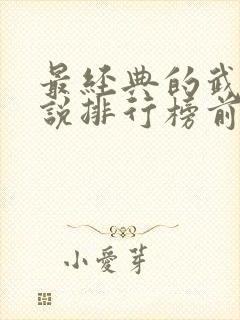 最經典的武
說排行榜前
小愛芽